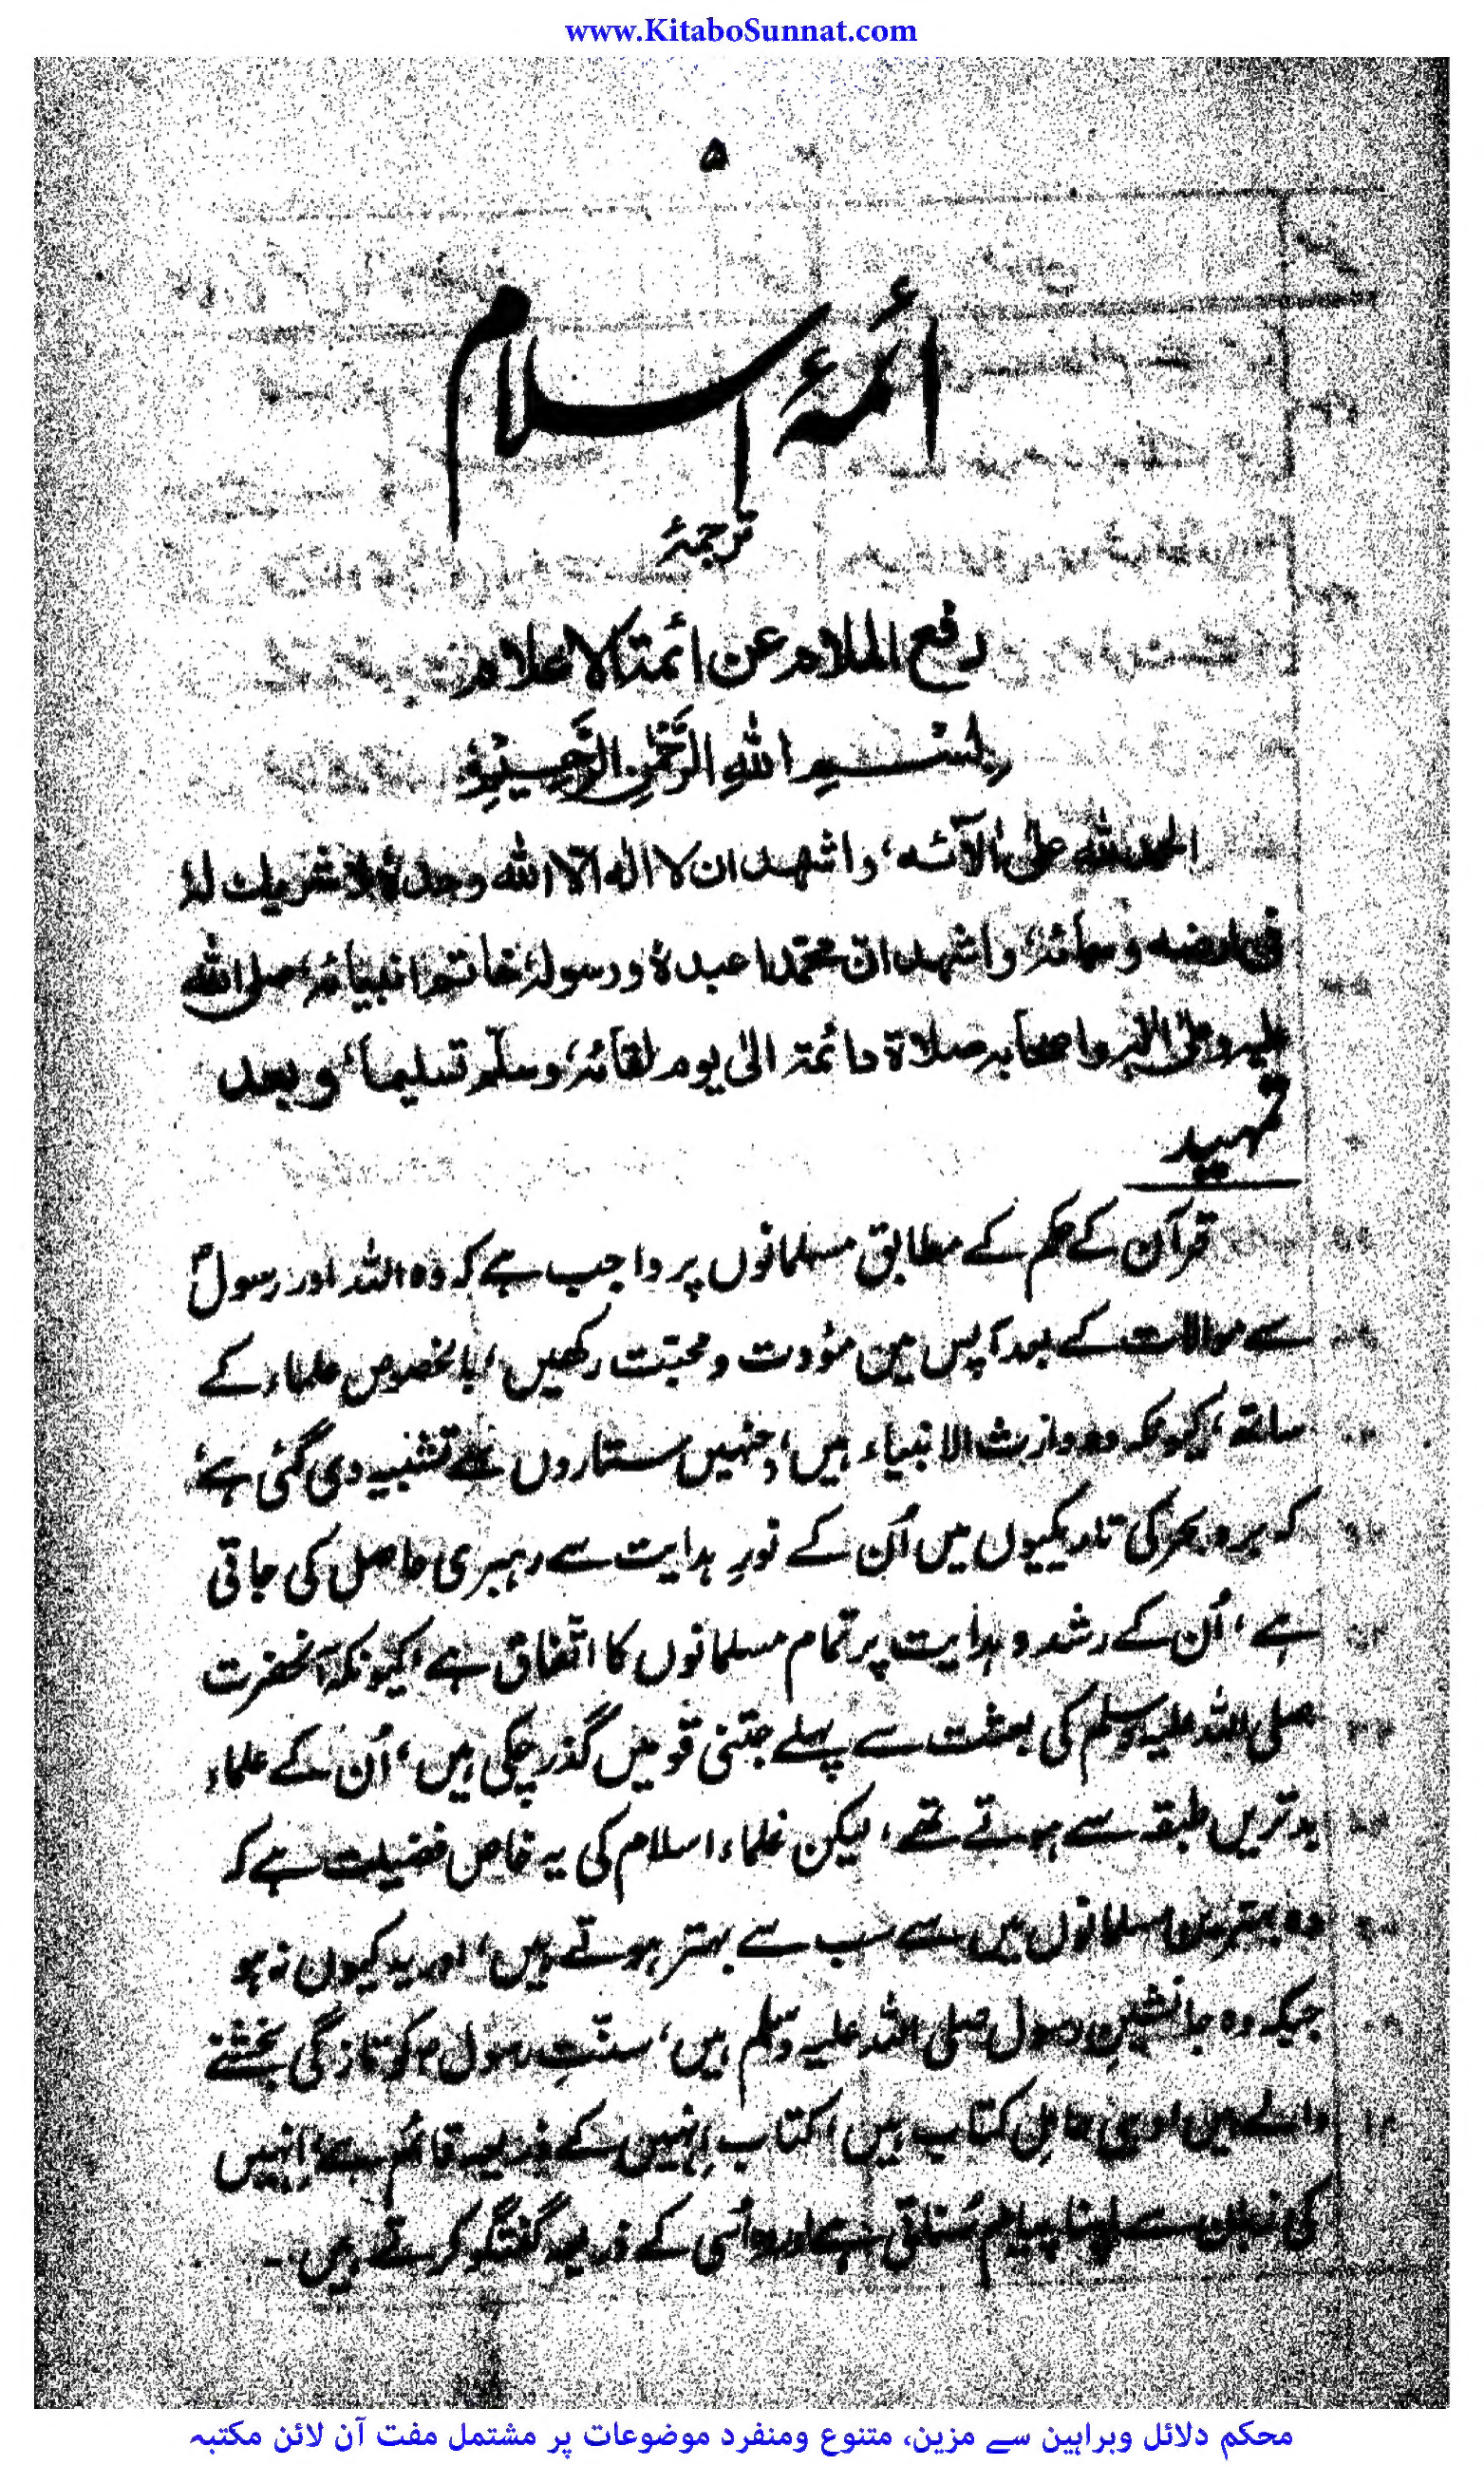 www.KitaboSunnat.com
۵
ائمۂ اسلام
ترجمۂ
رفع الملام عن ائمة الاعلام
بِسْمِ اللهِ الرَّحْمٰنِ الرَّحِيْمِ
الحمد لله على آلآئه، واشهد ان لا اله الا الله وحدهٗ لا شريك لهٗ
فی ارضه وسمائه، واشهد ان محمّدا عبدهٗ ورسولهٗ خاتم انبيائه، صلی الله
عليه وعلیٰ اٰله واصحابه صلاة دائمة الیٰ يوم لقائه، وسلّم تسليماً، وبعد
تمہید
قرآن کے حکم کے مطابق مسلمانوں پر واجب ہے کہ وہ اللہ اور رسولؐ
سے موالات کے بعد آپس میں مؤدت و محبّت رکھیں، بالخصوص علماء کے
ساتھ، کیونکہ وہ وارث الانبیاء ہیں، جنہیں ستاروں سے تشبیہ دی گئی ہے،
کہ بر و بحر کی تاریکیوں میں اُن کے نورِ ہدایت سے رہبری حاصل کی جاتی
ہے، اُن کے رشد و ہدایت پر تمام مسلمانوں کا اتفاق ہے، کیونکہ آنحضرت
صلی اللہ علیہ وسلم کی بعثت سے پہلے جتنی قومیں گذر چکی ہیں، اُن کے علماء
بدترین طبقہ سے ہوتے تھے، لیکن علماء اسلام کی یہ خاص فضیلت ہے کہ
وہ بہترین مسلمانوں میں سے سب سے بہتر ہوتے ہیں، اور یہ کیوں نہ ہو
جبکہ وہ جانشینِ رسول صلی اللہ علیہ وسلم ہیں، سنّتِ رسولؐ کو تازگی بخشنے
والے ہیں اور یہی حاملِ کتاب ہیں، کتاب اِنہیں کے ذریعہ قائم ہے، اِنہیں
کی زبان سے اپنا پیام سُناتی ہے اور وہ اُسی کے ذریعہ گفتگو کرتے ہیں۔
محکم دلائل وبراہین سے مزین، متنوع ومنفرد موضوعات پر مشتمل مفت آن لائن مکتبہ